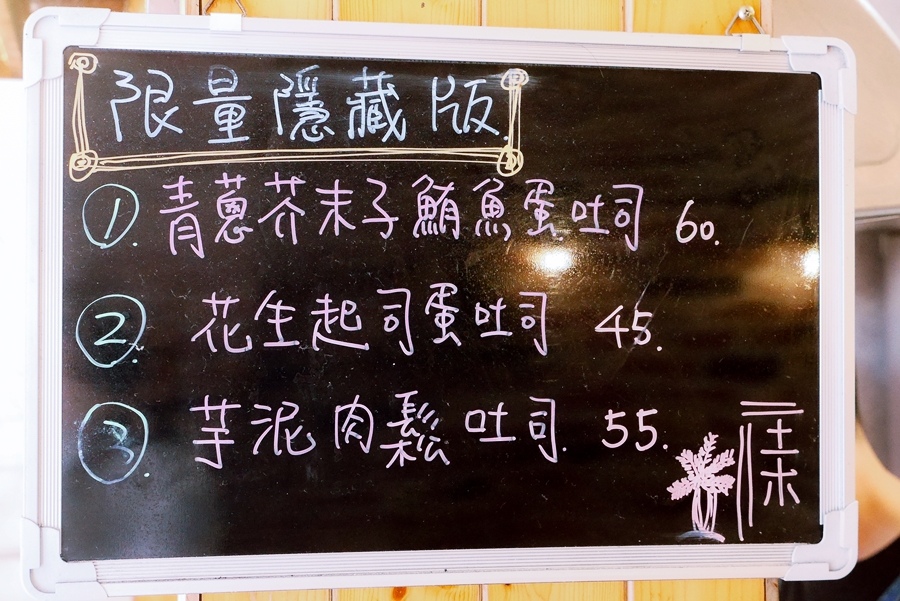 限量隱藏版
1. 青蔥芥末子鮪魚蛋吐司 60.
2. 花生起司蛋吐司 45.
3. 芋泥肉鬆吐司. 55.